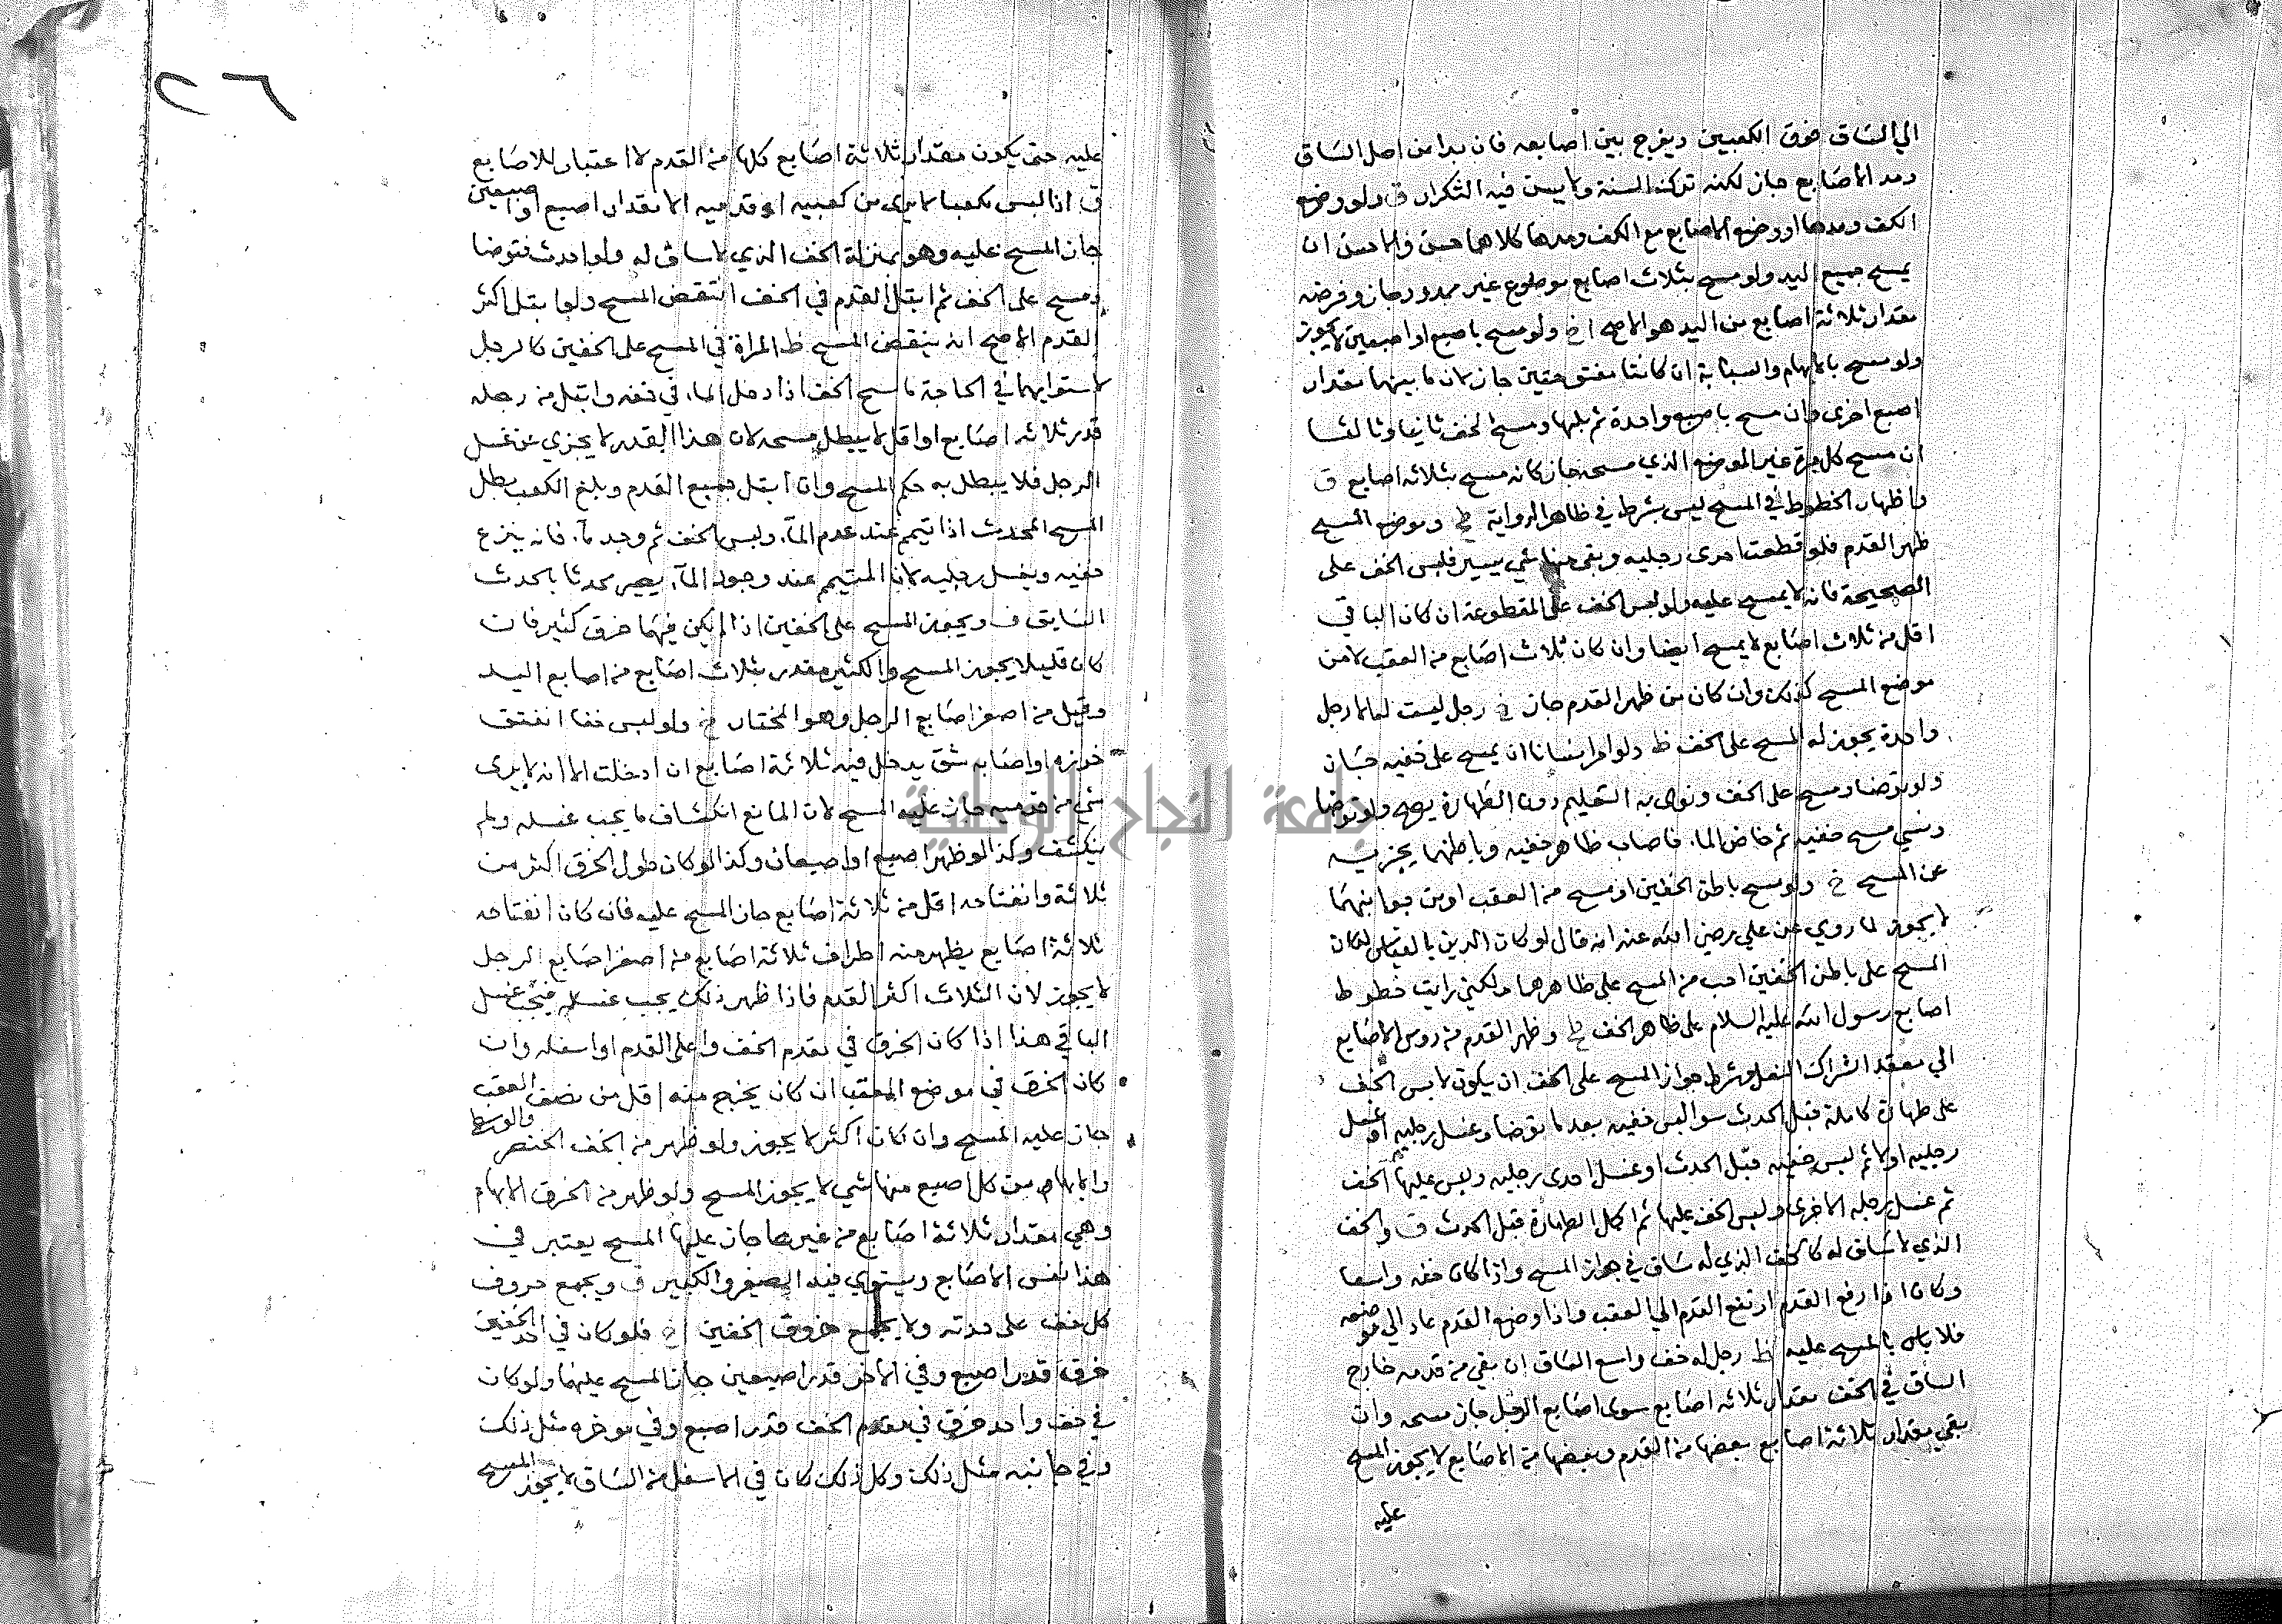 الي الساق فوق الكعبين ويفرج بين اصابعه فان بدا من اصل الساق
ومد الاصابع جاز لكنه ترك السنة ولا يسن فيه التكرار ق ولو وضع
الكف ومدها او وضع الاصابع مع الكف ومدها كلاهما حسن والاحسن ان
يمسح جميع اليد ولو مسح بثلاث اصابع موضوع غير ممدود جاز وفرضه
مقدار ثلاثة اصابع من اليد هو الاصح خ ولو مسح باصبع او اصبعين لا يجوز
ولو مسح بالابهام والسبابة ان كانتا مفتوحتين جاز لان ما بينهما مقدار
اصبع اخرى وان مسح باصبع واحدة ثم بلها ومسح الخف ثانيا وثالثا
ان مسح كل مرة غير الموضع الذي مسحه جاز كانه مسح بثلاثه اصابع ق
واظهار الخطوط في المسح ليس بشرط في ظاهر الرواية خ وموضع المسح
ظهر القدم فلو قطعت احدى رجليه وبقي منها شي يسير فلبس الخف على
الصحيحة فانه لا يمسح عليه ولو لبس الخف على المقطوعة ان كان الباقي
اقل من ثلاث اصابع لا يمسح ايضا وان كان ثلاث اصابع من العقب لا من
موضع المسح كذلك وان كان من ظهر القدم جاز خ رجل ليست له الا رجل
واحدة يجوز له المسح على الخف ظ ولو امر انسانا ان يمسح على خفيه جاز
ولو توضا ومسح على الخف ونوى به التعليم دون الطهارة يصح ولو توضا
ونسي مسح خفيه ثم خاض الماء فاصاب ظاهر خفيه وباطنهما يجزيه
عن المسح خ ولو مسح باطن الخفين او مسح من العقب او من جوانبهما
لا يجوز لما روي عن علي رضي الله عنه انه قال لو كان الدين بالقياس لكان
المسح على باطن الخفين احب من المسح على ظاهرهما ولكني رايت خطوط
اصابع رسول الله عليه السلام على ظاهر الخف خ وظهر القدم من روس الاصابع
الي معقد الشراك النعل وشرط جواز المسح على الخف ان يكون لابس الخف
على طهارة كاملة قبل الحدث سوا لبس خفيه بعد ما توضا وغسل رجليه او غسل
رجليه اولا ثم لبس خفيه قبل الحدث او غسل احدى رجليه ولبس عليها الخف
ثم غسل رجله الاخرى ولبس الخف عليها ثم اكمل الطهارة قبل الحدث ق والخف
الذي لا ساق له كالخف الذي له ساق في جواز المسح واذا كان خفه واسعا
وكان اذا رفع القدم ارتفع القدم الي العقب واذا وضع القدم عاد الي موضعه
فلا باس بالمسح عليه ظ رجل له خف واسع الساق ان بقي من قدمه خارج
الساق في الخف مقدار ثلاثه اصابع سوى اصابع الرجل جاز مسحه وان
بقي مقدار ثلاثة اصابع بعضها من القدم وبعضها من الاصابع لا يجوز المسح
عليه
٢٦
عليه حتى يكون مقدار ثلاثة اصابع كلها من القدم لا اعتبار للاصابع
ق اذا لبس مكعبا لا يرى من كعبيه او قدميه الا مقدار اصبع او اصبعين
جاز المسح عليه وهو بمنزلة الخف الذي لا ساق له ولو احدث فتوضا
ومسح على الخف ثم ابتل القدم في الخف انتقض المسح ولو ابتل اكثر
القدم الاصح انه ينقض المسح ظ المراة في المسح على الخفين كالرجل
لاستوايهما في الحاجة ماسح الخف اذا دخل الماء في خفه وابتل من رجله
قدر ثلاثه اصابع او اقل لا يبطل مسحه لان هذا القدر لا يجزي عن غسل
الرجل فلا يبطل به حكم المسح وان ابتل جميع القدم وبلغ الكعب بطل
المسح المحدث اذا تيمم عند عدم الماء ولبس الخف ثم وجد ماء فانه ينزع
خفيه ويغسل رجليه لان المتيمم عند وجود الماء يصير محدثا بالحدث
السابق ف ويجوز المسح على الخفين اذا لم يكن فيهما خرق كثير فان
كان قليلا يجوز المسح والكثير مقدر بثلاث اصابع من اصابع اليد
وقيل من اصغر اصابع الرجل وهو المختار خ ولو لبس خفا انفتق
خرزه او اصابه شق يدخل فيه ثلاثة اصابع ان ادخلت الا انه لا يرى
شي من قدميه جاز عليه المسح لان المانع انكشاف ما يجب غسله ولم
ينكشف وكذا لو ظهر اصبع او اصبعان وكذا لو كان طول الخرق اكثر من
ثلاثة وانفتاحه اقل من ثلاثة اصابع جاز المسح عليه فان كان انفتاحه
ثلاثة اصابع يظهر منه اطراف ثلاثة اصابع من اصغر اصابع الرجل
لا يجوز لان الثلاث اكثر القدم فاذا ظهر ذلك يجب غسله فيجب غسل
الباقي هذا اذا كان الخرق في مقدم الخف واعلى القدم او اسفله وان
كان الخرق في موضع العقب ان كان يخرج منه اقل من نصف العقب
جاز عليه المسح وان كان اكثر لا يجوز ولو ظهر من الخف الخنصر والوسط
والابهام من كل اصبع منها شي لا يجوز المسح ولو ظهر من الخرق الابهام
وهي مقدار ثلاثة اصابع من غيرها جاز عليها المسح يعتبر في
هذا نفس الاصابع ويستوي فيه الصغير والكبير ف ويجمع خروق
كل خف على حدته ولا يجمع خروق الخفين خ فلو كان في احد الخفين
خرق قدر اصبع وفي الاخر قدر اصبعين جاز المسح عليهما ولو كان
في خف واحد خرق في مقدم الخف قدر اصبع وفي موخره مثل ذلك
وفي جانبه مثل ذلك وكل ذلك كان في الاسفل من الساق لا يجوز المسح
جامعة النجاح الوطنية